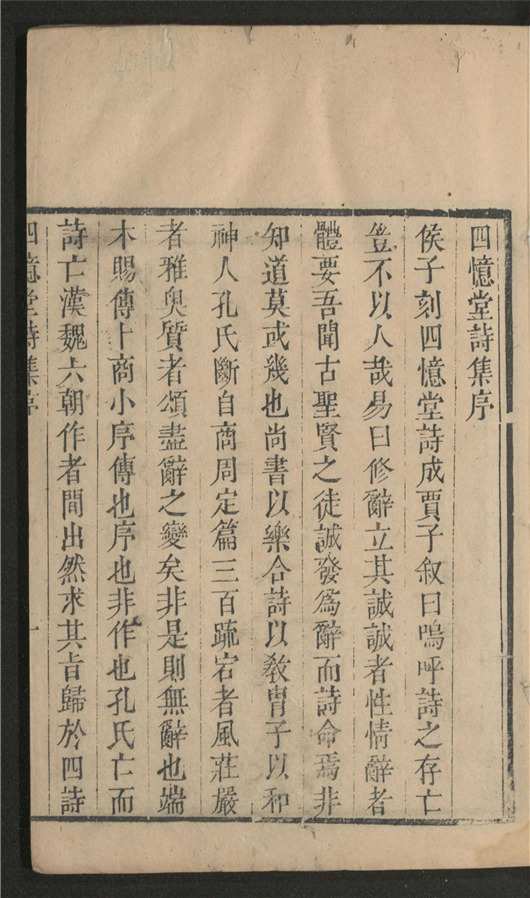 四憶堂詩集序
侯子刻四憶堂詩成賈子叙曰嗚呼詩之存亡
豈不以人哉易曰修辭立其誠誠者性情辭者
體要吾聞古聖賢之徒誠發爲辭而詩命焉非
知道莫或幾也尚書以樂合詩以敎胄子以和
神人孔氏斷自商周定篇三百疏宕者風莊嚴
者雅奥質者頌盡辭之變矣非是則無辭也端
木賜傳卜商小序傳也序也非作也孔氏亡而
詩亡漢魏六朝作者間出然求其旨歸於四詩
四憶堂詩集序
一